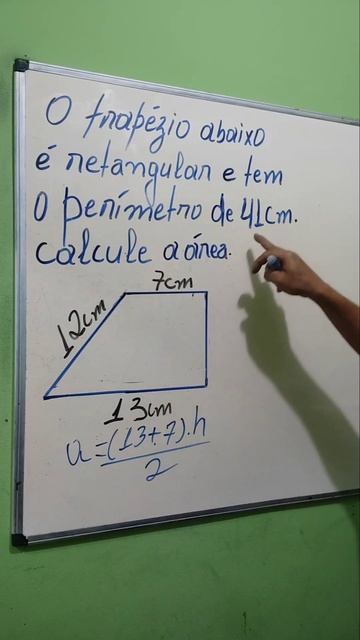 O trapézio abaixo
é retangular e tem
O perímetro de 41cm.
calcule a área.
7cm
12cm
13cm
a=(13+7).h
2